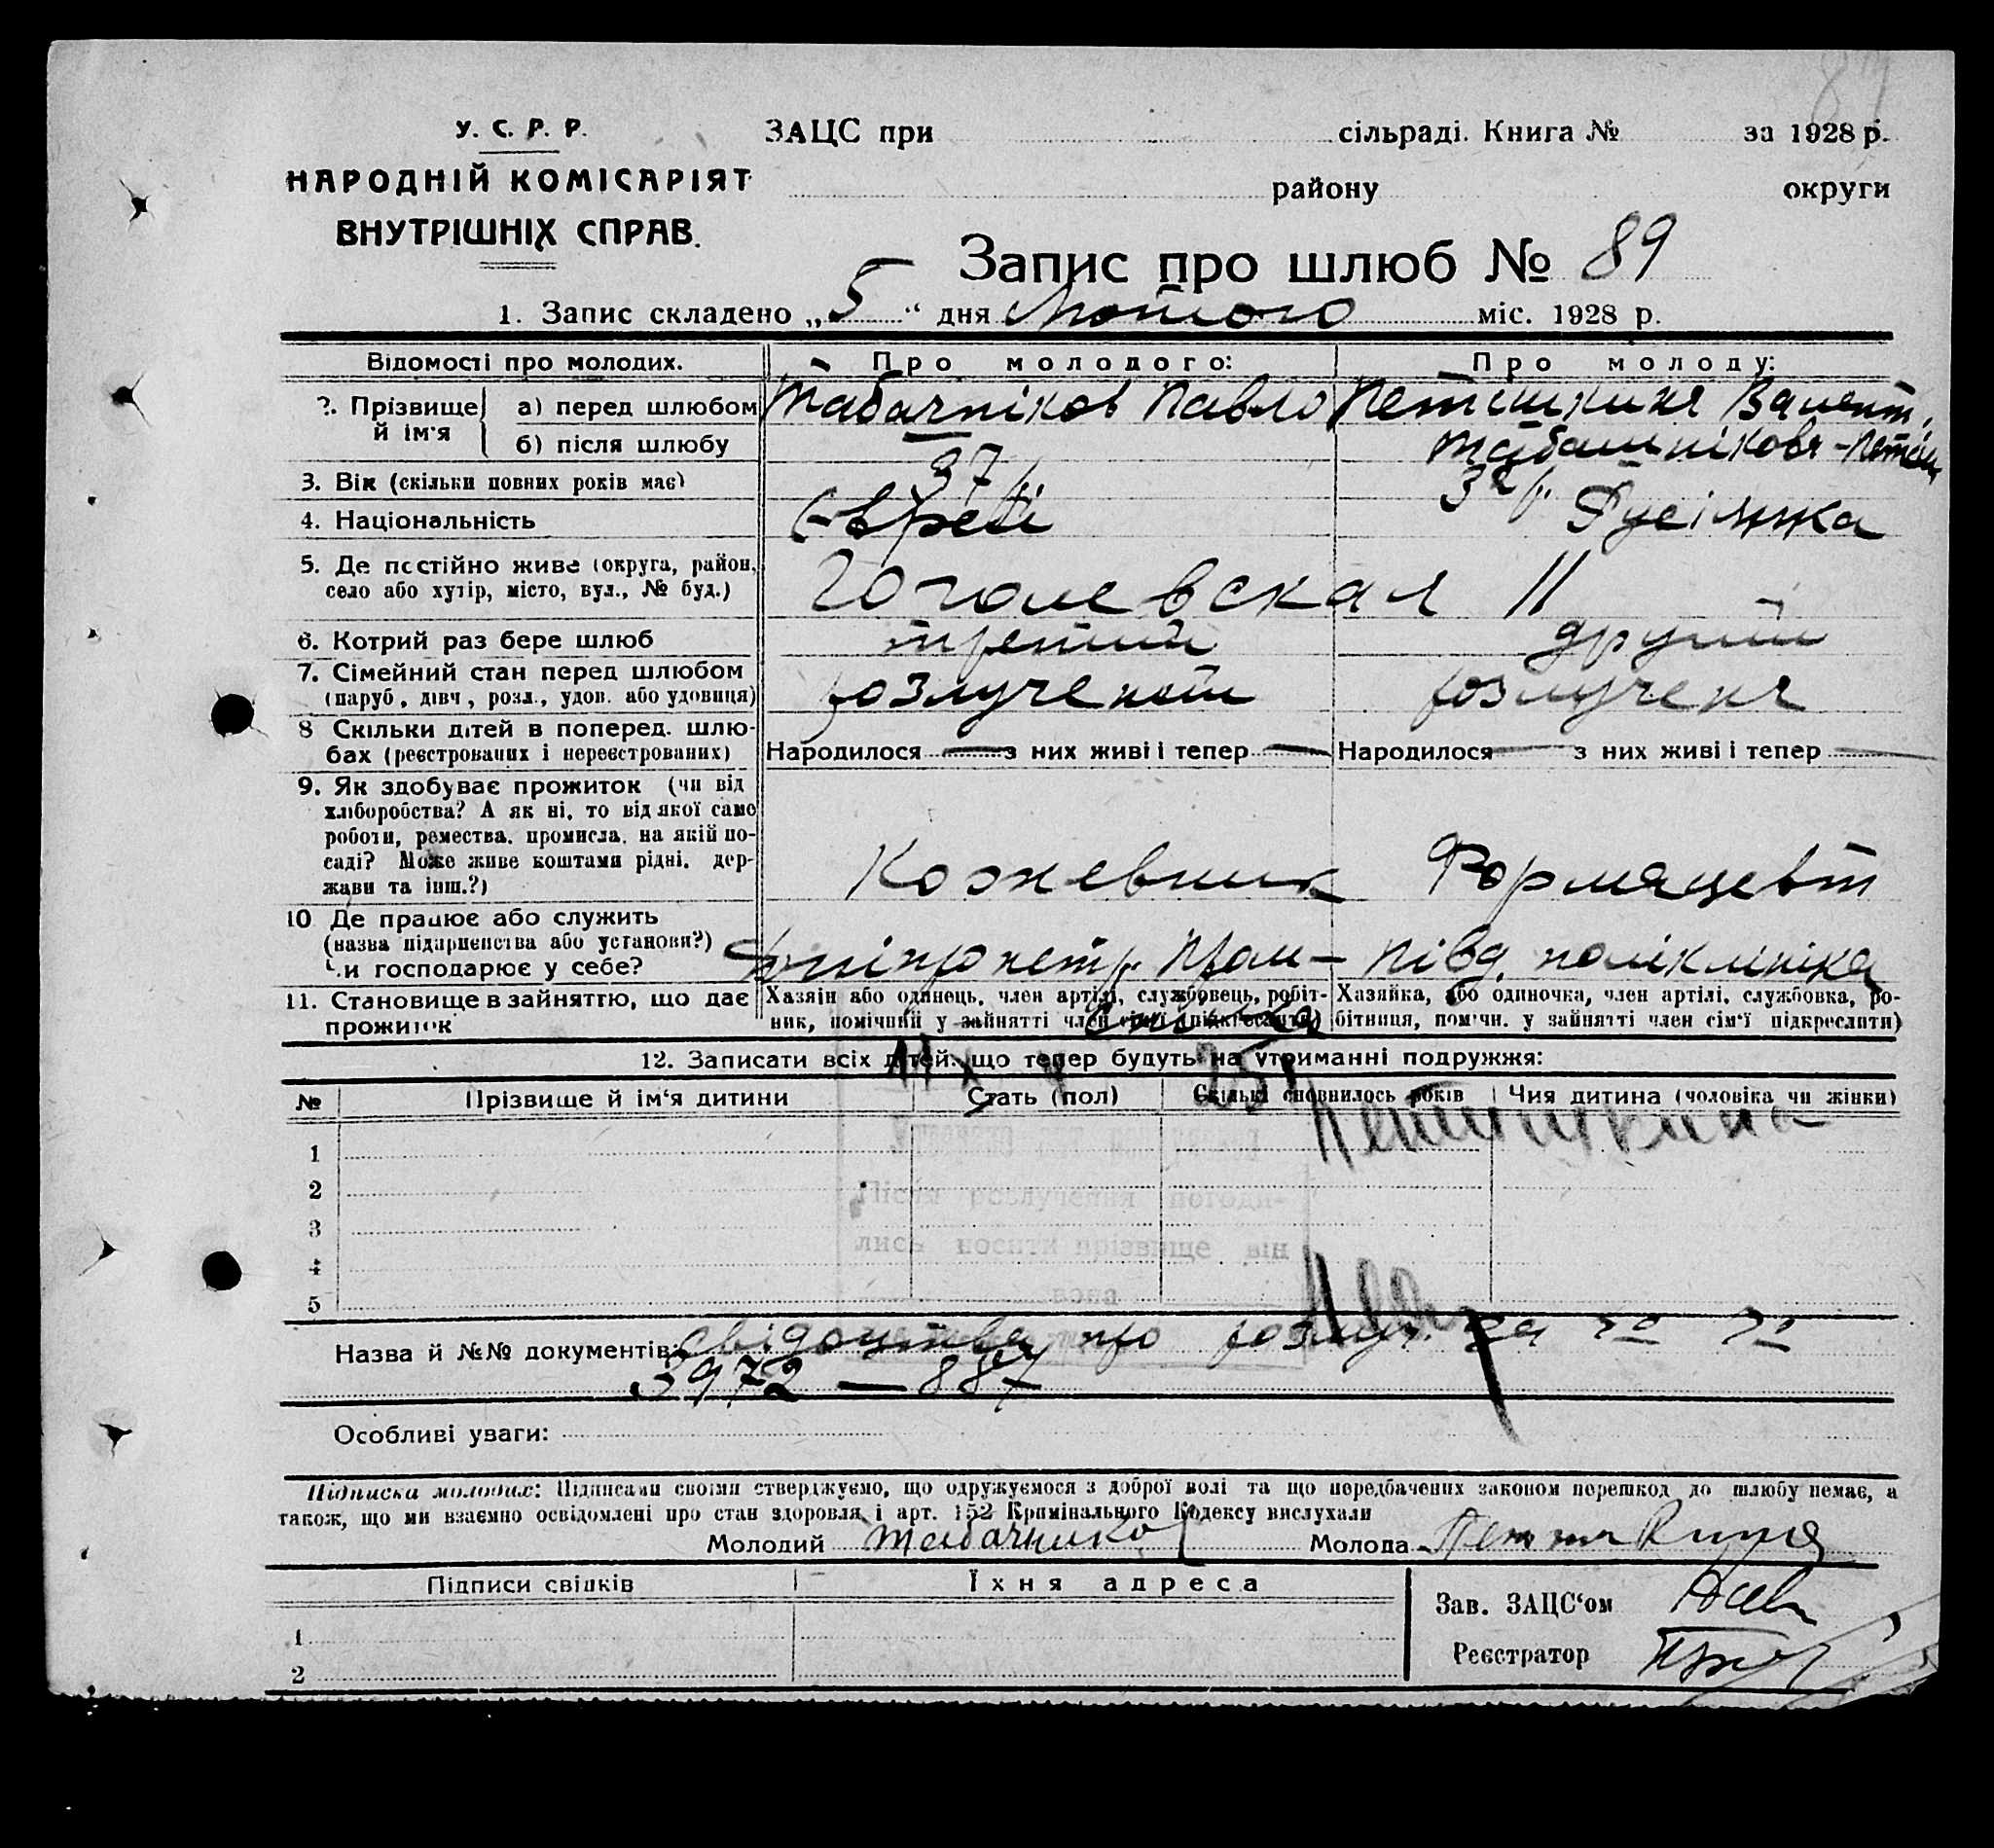 У. С. Р. Р.
НАРОДНІЙ КОМІСАРІЯТ
ВНУТРІШНІХ СПРАВ.
ЗАЦС при сільраді. Книга № за 1928 р.
району округи
Запис про шлюб № 89
1. Запис складено „5“ дня Лютого міс. 1928 р.
Відомості про молодих. Про молодого: Про молоду:
2. Прізвище й ім'я
а) перед шлюбом Табачніков Павло Петишкиня Валент.
б) після шлюбу Табашнікова-
3. Вік (скільки повних років має) 37 р. 32 р.
4. Національність Єврей Русінка
5. Де постійно живе (округа, район,
село або хутір, місто, вул., № буд.) Гоголевская 11
6. Котрий раз бере шлюб третий другий
7. Сімейний стан перед шлюбом
(паруб, дівч, розл., удов. або удовиця) розлучений розлученя
8 Скільки дітей в поперед. шлю-
бах (реєстрованих і нереєстрованих) Народилося — з них живі і тепер — Народилося — з них живі і тепер —
9. Як здобуває прожиток (чи від
хліборобства? А як ні, то від якої само
роботи, ремества, промисла, на якій по-
саді? Може живе коштами рідні, дер-
жави та інш.?)
Кожевник Формацевт
10 Де працює або служить
(назва підприємства або установи?)
Чи господарює у себе?
Дніпропетр. Пром- Півд. поліклініка
11. Становище в занятгю, що дає
прожиток
Хазяїн або одинець, член артілі, службовець, робіт-
ник, помічний у зайнятті член сім'ї (підкреслити)
Хазяйка, або одиночка, член артілі, службовка, ро-
бітниця, помічн. у зайнятті член сім'ї підкреслити)
12. Записати всіх дітей, що тепер будуть на утриманні подружжя:
№ Прізвище й ім'я дитини Стать (пол) Скільки сповнилось років Чия дитина (чоловіка чи жінки)
1
2
Після розлучення погоди-
3
лись носити прізвище він
4
вона
5
Назва й №№ документів: свідоцтва про розлуч. за № №
3972 — 887
Особливі уваги:
Підписка молодих: Підписами своїми стверджуємо, що одружуємося з доброї волі та що передбачених законом перешкод до шлюбу немає, а
також, що ми взаємно освідомлені про стан здоровля і арт. 152 Кримінального Кодексу вислухали
Молодий Табачников Молода Петишкиня
Підписи свідків Їхня адреса
Зав. ЗАЦС'ом
1
Реєстратор
2